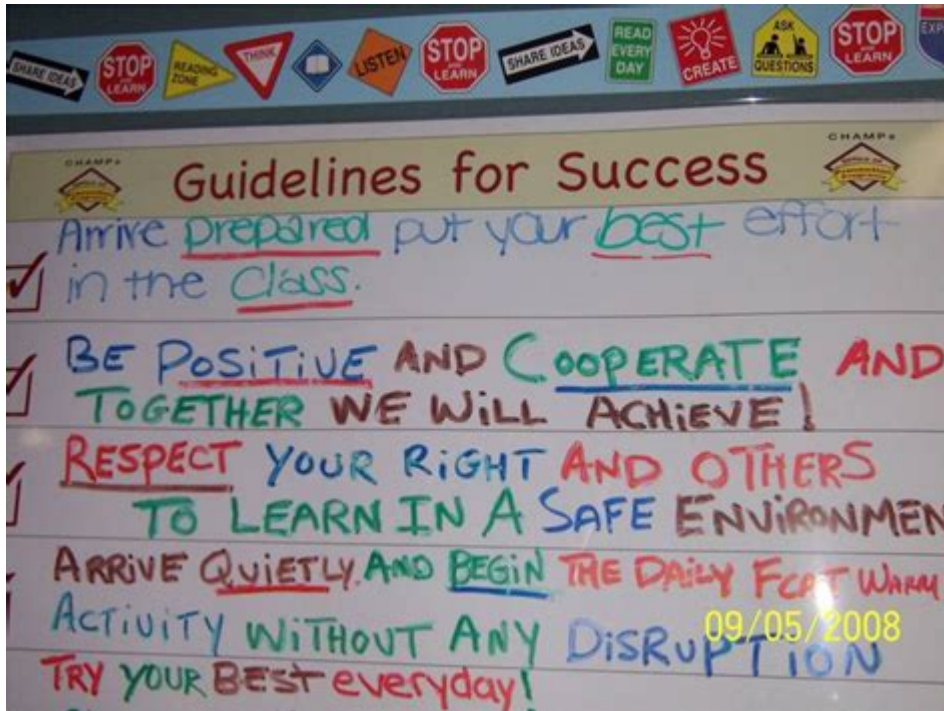 SHARE IDEAS STOP and LEARN READING ZONE THINK LISTEN STOP and LEARN SHARE IDEAS READ EVERY DAY CREATE ASK QUESTIONS STOP and LEARN EXP
CHAMPs Guidelines for Success CHAMPs
Arrive prepared put your best effort
in the class.
BE POSITIVE AND COOPERATE AND
TOGETHER WE WILL ACHIEVE!
RESPECT YOUR RIGHT AND OTHERS
TO LEARN IN A SAFE ENVIRONMEN
ARRIVE QUIETLY AND BEGIN THE DAILY FCAT WARM
ACTIVITY WITHOUT ANY DISRUPTION
09/05/2008
TRY YOUR BEST everyday!